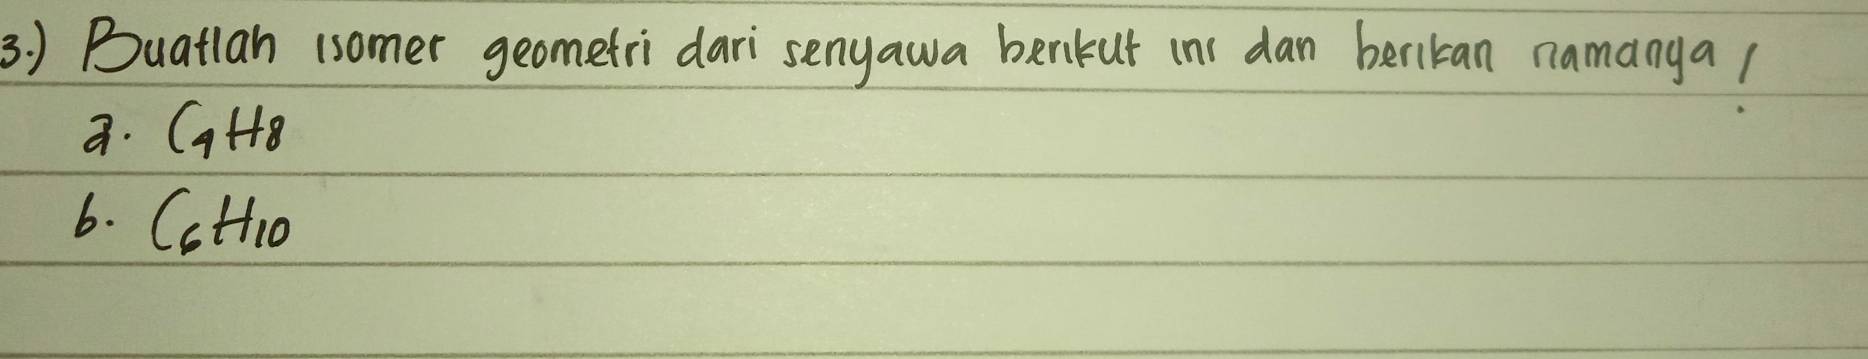 3.) Buatlah isomer geometri dari senyawa berikut ini dan berikan namanya!
a. C4H8
b. C6H10